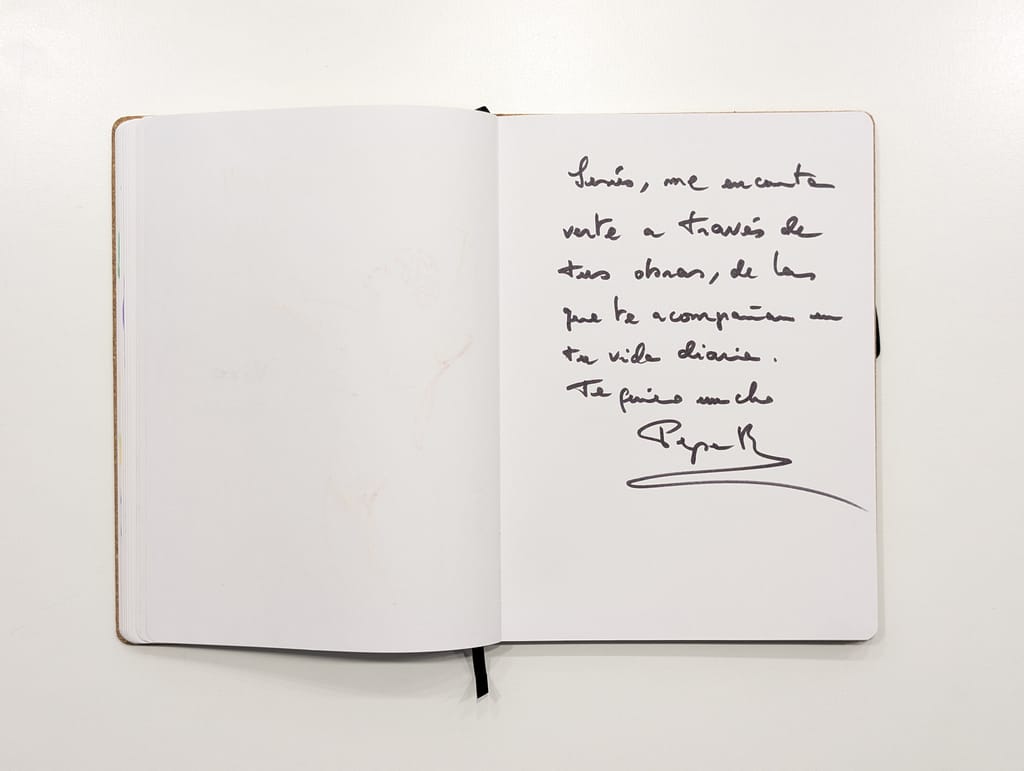 me encanta
verte a través de
tus obras, de las
que te acompañan en
tu vida diaria.
Te quiero mucho
Pepe R